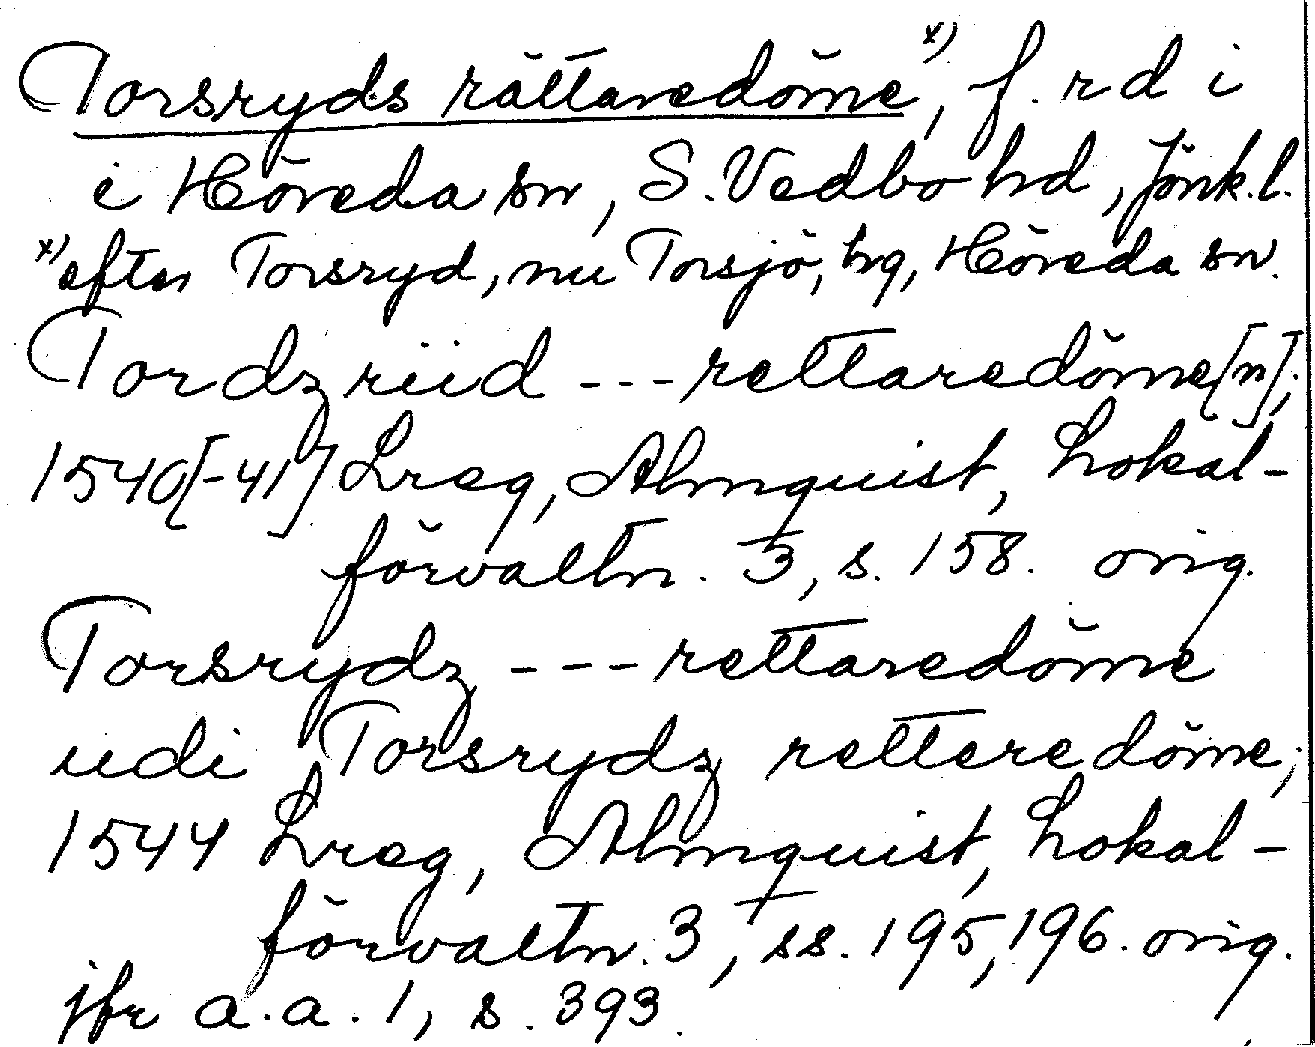 Torsryds rättaredöme x), f. r d i
i Höreda sn, S. Vedbo hd, Jönk. l.
x) efter Torsryd, nu Torsjö, hg, Höreda sn.
Tordzriid --- rettaredöme[n];
1540[-41] Lreg, Almquist, Lokal-
förvaltn. 3, s. 158. orig.
Torsrydz --- rettaredöme
udi Torsrydz retteredöme;
1544 Lreg, Almquist, Lokal-
förvaltn. 3, ss. 195, 196. orig.
jfr a.a. 1, s. 393.